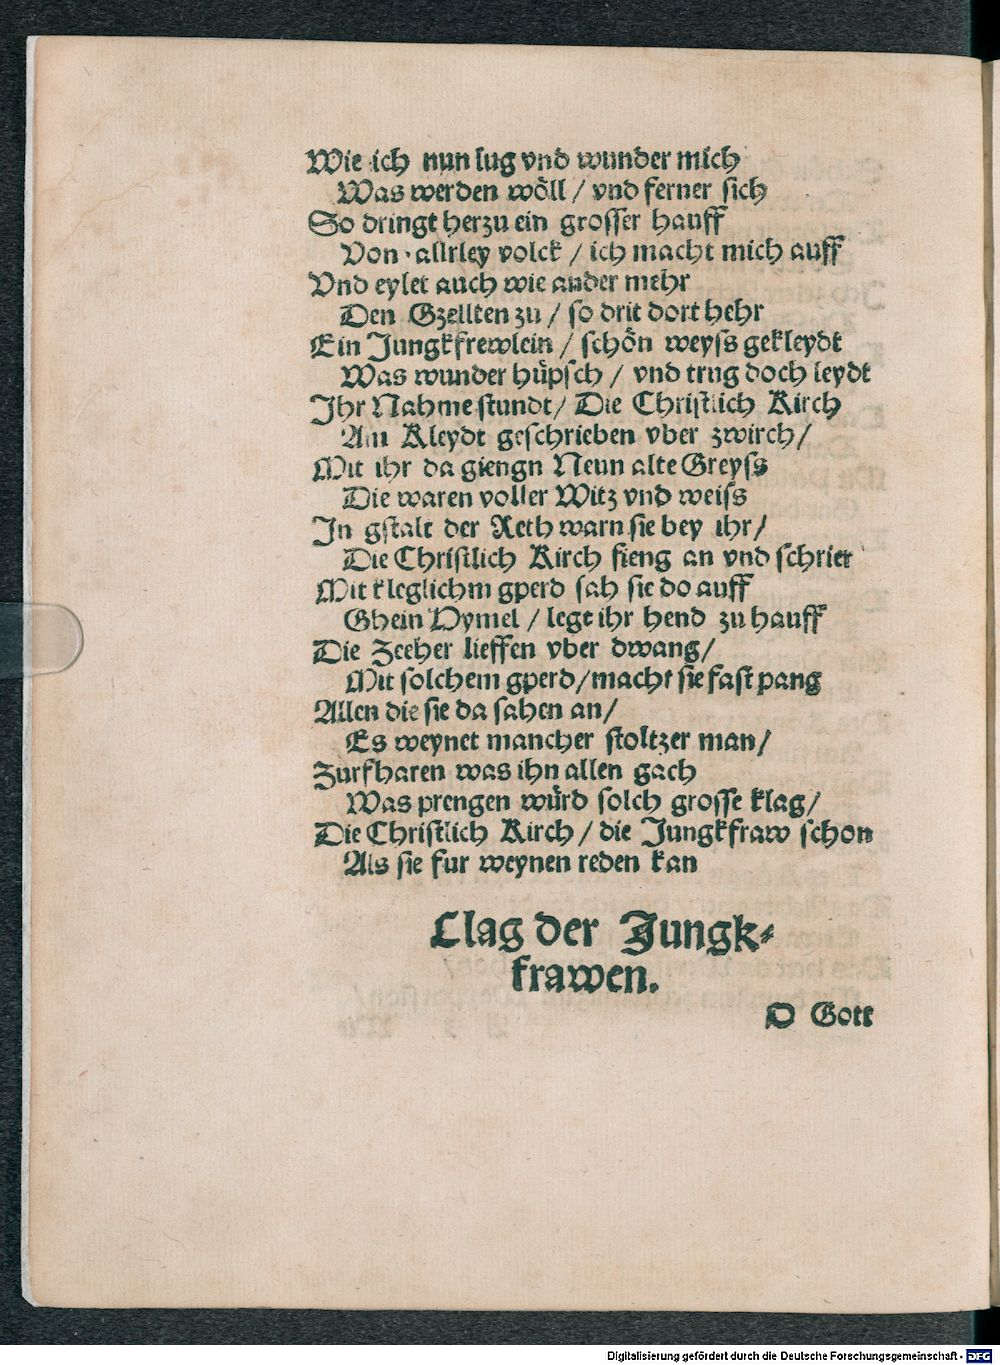 Wie ich nun lug vnd wunder mich
Was werden wöll / vnd ferner sich
So dringt herzu ein grosser hauff
Von allrley volck / ich macht mich auff
Vnd eylet auch wie ander mehr
Den Gzellten zu / so drit dort hehr
Ein Jungkfrewlein / schön weyss gekleydt
Was wunder hüpsch / vnd trug doch leydt
Jhr Nahme stundt / Die Christlich Kirch
Am Kleydt geschrieben vber zwirch /
Mit ihr da giengn Neun alte Greyss
Die waren voller Witz vnd weiss
Jn gstalt der Reth warn sie bey ihr /
Die Christlich Kirch fieng an vnd schrier
Mit kleglichm gperd sah sie do auff
Ghein Hymel / legt ihr hend zu hauff
Die Zeeher lieffen vber dwang /
Mit solchem gperd / macht sie fast pang
Allen die sie da sahen an /
Es weynet mancher stoltzer man /
Zurfharen was ihn allen gach
Was prengen würd solch grosse klag /
Die Christlich Kirch / die Jungkfraw schon
Als sie fur weynen reden kan
Clag der Jungk-
frawen.
O Gott
Digitalisierung gefördert durch die Deutsche Forschungsgemeinschaft - DFG